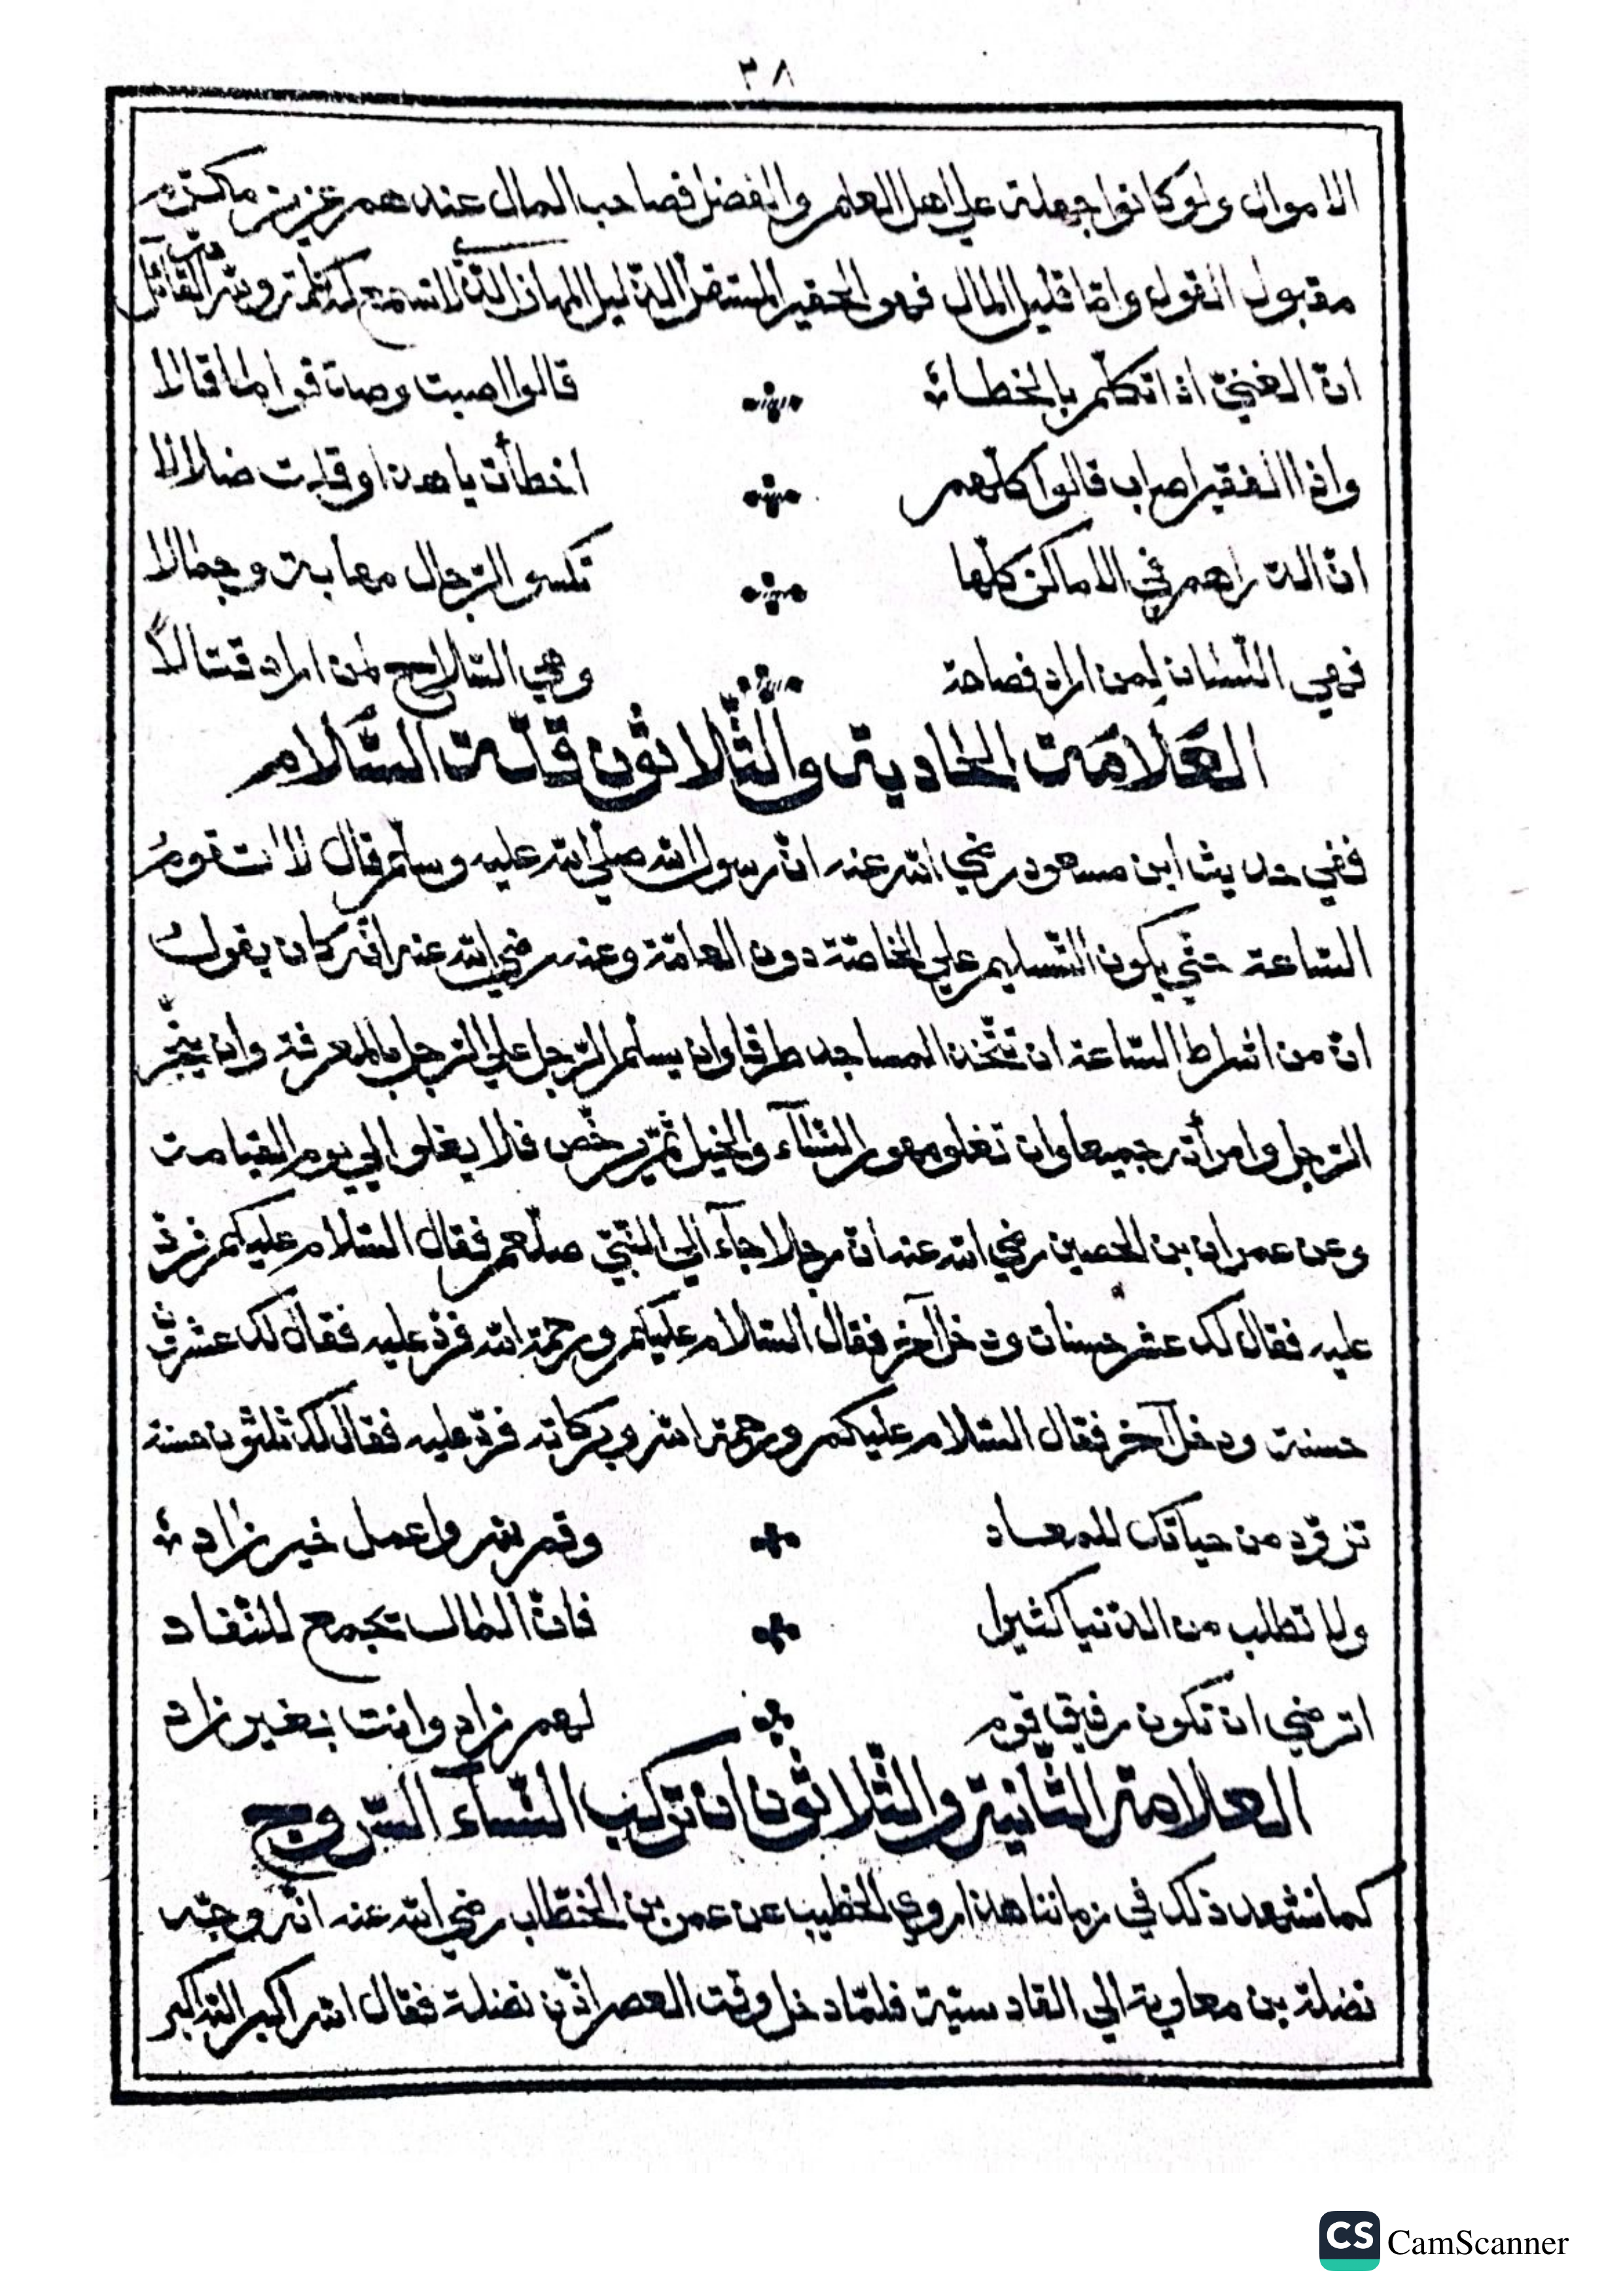 ٣٨
الاموال ولو كانوا جهلة على اهل العلم والفضل فصاحب المال عندهم عزيز مكرم
مقبول القول واما قليل المال فهو الحقير المستقل الذليل المهان الذي لا تسمع له كلمة ولله در القائل
انّ الغنيّ اذا تكلّم بالخطاء قالوا اصبت وصدقوا ما قالا
واذا الفقير اصاب قالوا كلّهم اخطأت يا هذا وقلت ضلالا
انّ الدراهم في الاماكن كلّها تكسو الرّجال مهابة وجمالا
فهي اللّسان لمن اراد فصاحة وهي السّلاح لمن اراد قتالاً
العَلامَة الحادية والثّلاثون قلّة السَّلام
ففي حديث ابن مسعود رضي الله عنه انّ رسول الله صلّى الله عليه وسلّم قال لا تقومُ
السّاعة حتّي يكون التّسليم علي الخاصّة دون العامّة وعنه رضي الله عنه انّه كان يقولُ
انّ من اشراط السّاعة ان تتّخذ المساجد طرقا وان يسلّم الرّجل علي الرّجل بالمعرفة وان يتّجر
الرّجل وامرأته جميعا وان تغلو مهور النّسآء والخيل ثمّ يرخّص فلا يغلو الي يوم القيامة
وعن عمران بن الحصين رضي الله عنه انّ رجلا جآء الي النّبيّ صلعم فقال السّلام عليكم فردّ
عليه فقال لك عشر حسنات ودخل آخر فقال السّلام عليكم ورحمة الله فردّ عليه فقال لك عشرون
حسنة ودخل آخر فقال السّلام عليكم ورحمة الله وبركاته فردّ عليه فقال لك ثلثون حسنة
تزوّد من حياتك للمعاد وقم لله واعمل خير زاد
ولا تطلب من الدّنيا كثيرا فانّ المال تجمع للنّفاد
اترضي ان تكون رفيق قوم لهم زاد وانت بغير زاد
العلامة الثّانية والثّلاثون ان تركب النّسآء السّروج
كما نشهد ذلك في زماننا هذا روي الخطيب عن عمر بن الخطّاب رضي الله عنه انّه وجّه
نضلة بن معاوية الي القادسيّة فلمّا دخل وقت العصر اذّن نضلة فقال الله اكبر الله اكبر
CS CamScanner